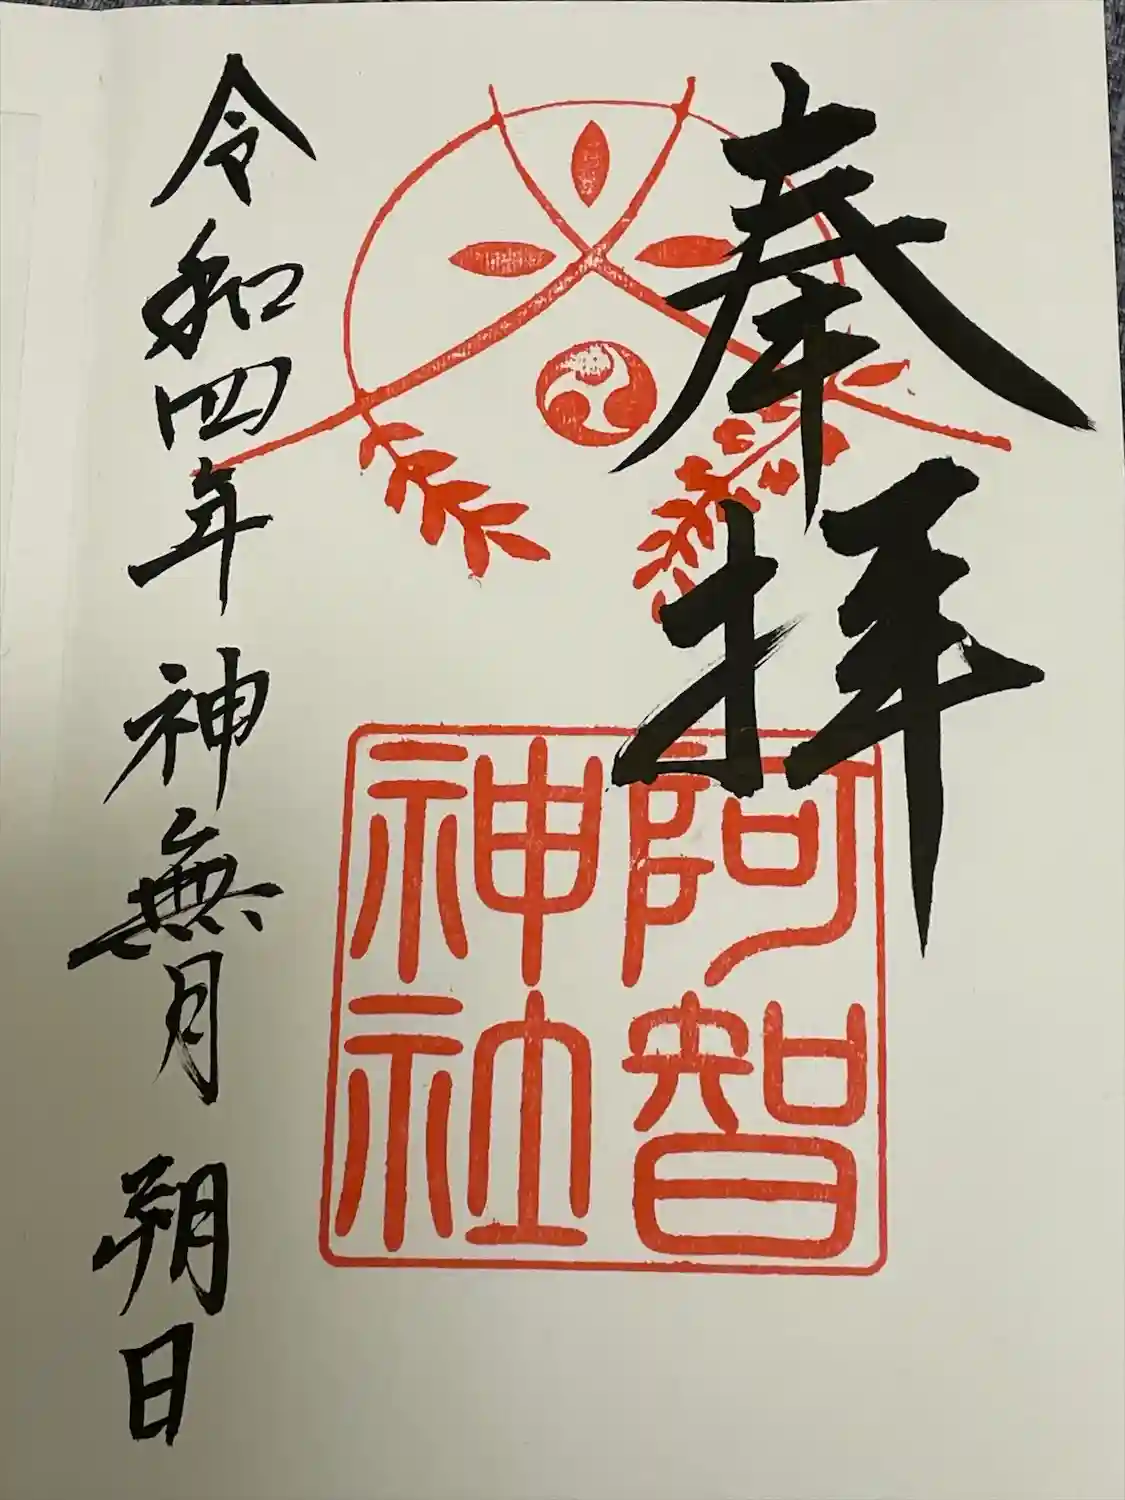 奉拝
阿智
神社
令和四年神無月朔日